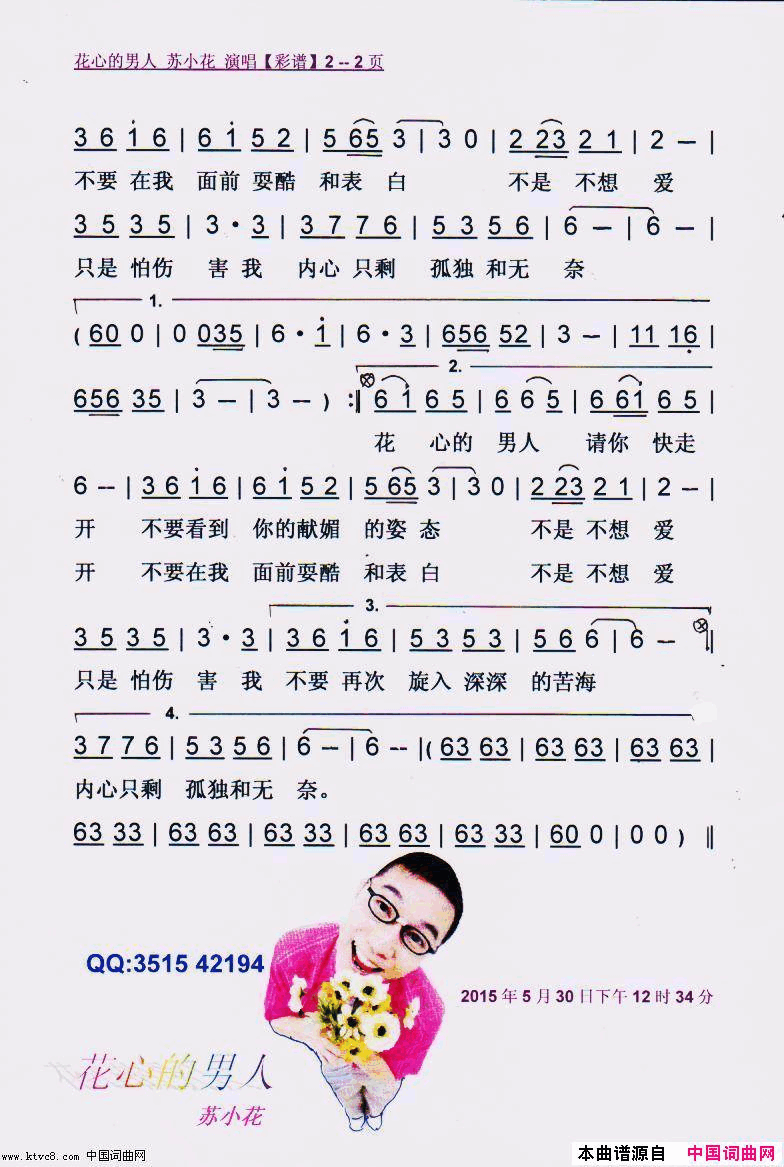 花心的男人 苏小花 演唱【彩谱】2 -- 2 页
3 6 1 6 | 6 1 5 2 | 5 65 3 | 3 0 | 2 23 2 1 | 2 — |
不要 在我 面前 耍酷 和表 白 不是 不想 爱
3 5 3 5 | 3 · 3 | 3 7 7 6 | 5 3 5 6 | 6 — | 6 — |
只是 怕伤 害 我 内心 只剩 孤独 和无 奈
1.
( 60 0 | 0 035 | 6 · 1 | 6 · 3 | 656 52 | 3 — | 11 16 |
2.
656 35 | 3 — | 3 — ) :‖ 6 1 6 5 | 6 6 5 | 6 61 6 5 |
花 心的 男人 请你 快走
6 -- | 3 6 1 6 | 6 1 5 2 | 5 65 3 | 3 0 | 2 23 2 1 | 2 — |
开 不要看到 你的献媚 的姿 态 不是 不想 爱
开 不要在我 面前耍酷 和表 白 不是 不想 爱
3.
3 5 3 5 | 3 · 3 | 3 6 1 6 | 5 3 5 3 | 5 6 6 | 6 — ‖
只是 怕伤 害 我 不要 再次 旋入 深深 的苦海
4.
3 7 7 6 | 5 3 5 6 | 6 — | 6 -- |( 63 63 | 63 63 | 63 63 |
内心只剩 孤独和无 奈。
63 33 | 63 63 | 63 33 | 63 63 | 63 63 | 60 0 | 0 0 ) ‖
QQ:3515 42194
2015 年 5 月 30 日下午 12 时 34 分
花心的男人
苏小花
www.ktvc8.com 中国词曲网
本曲谱源自 中国词曲网